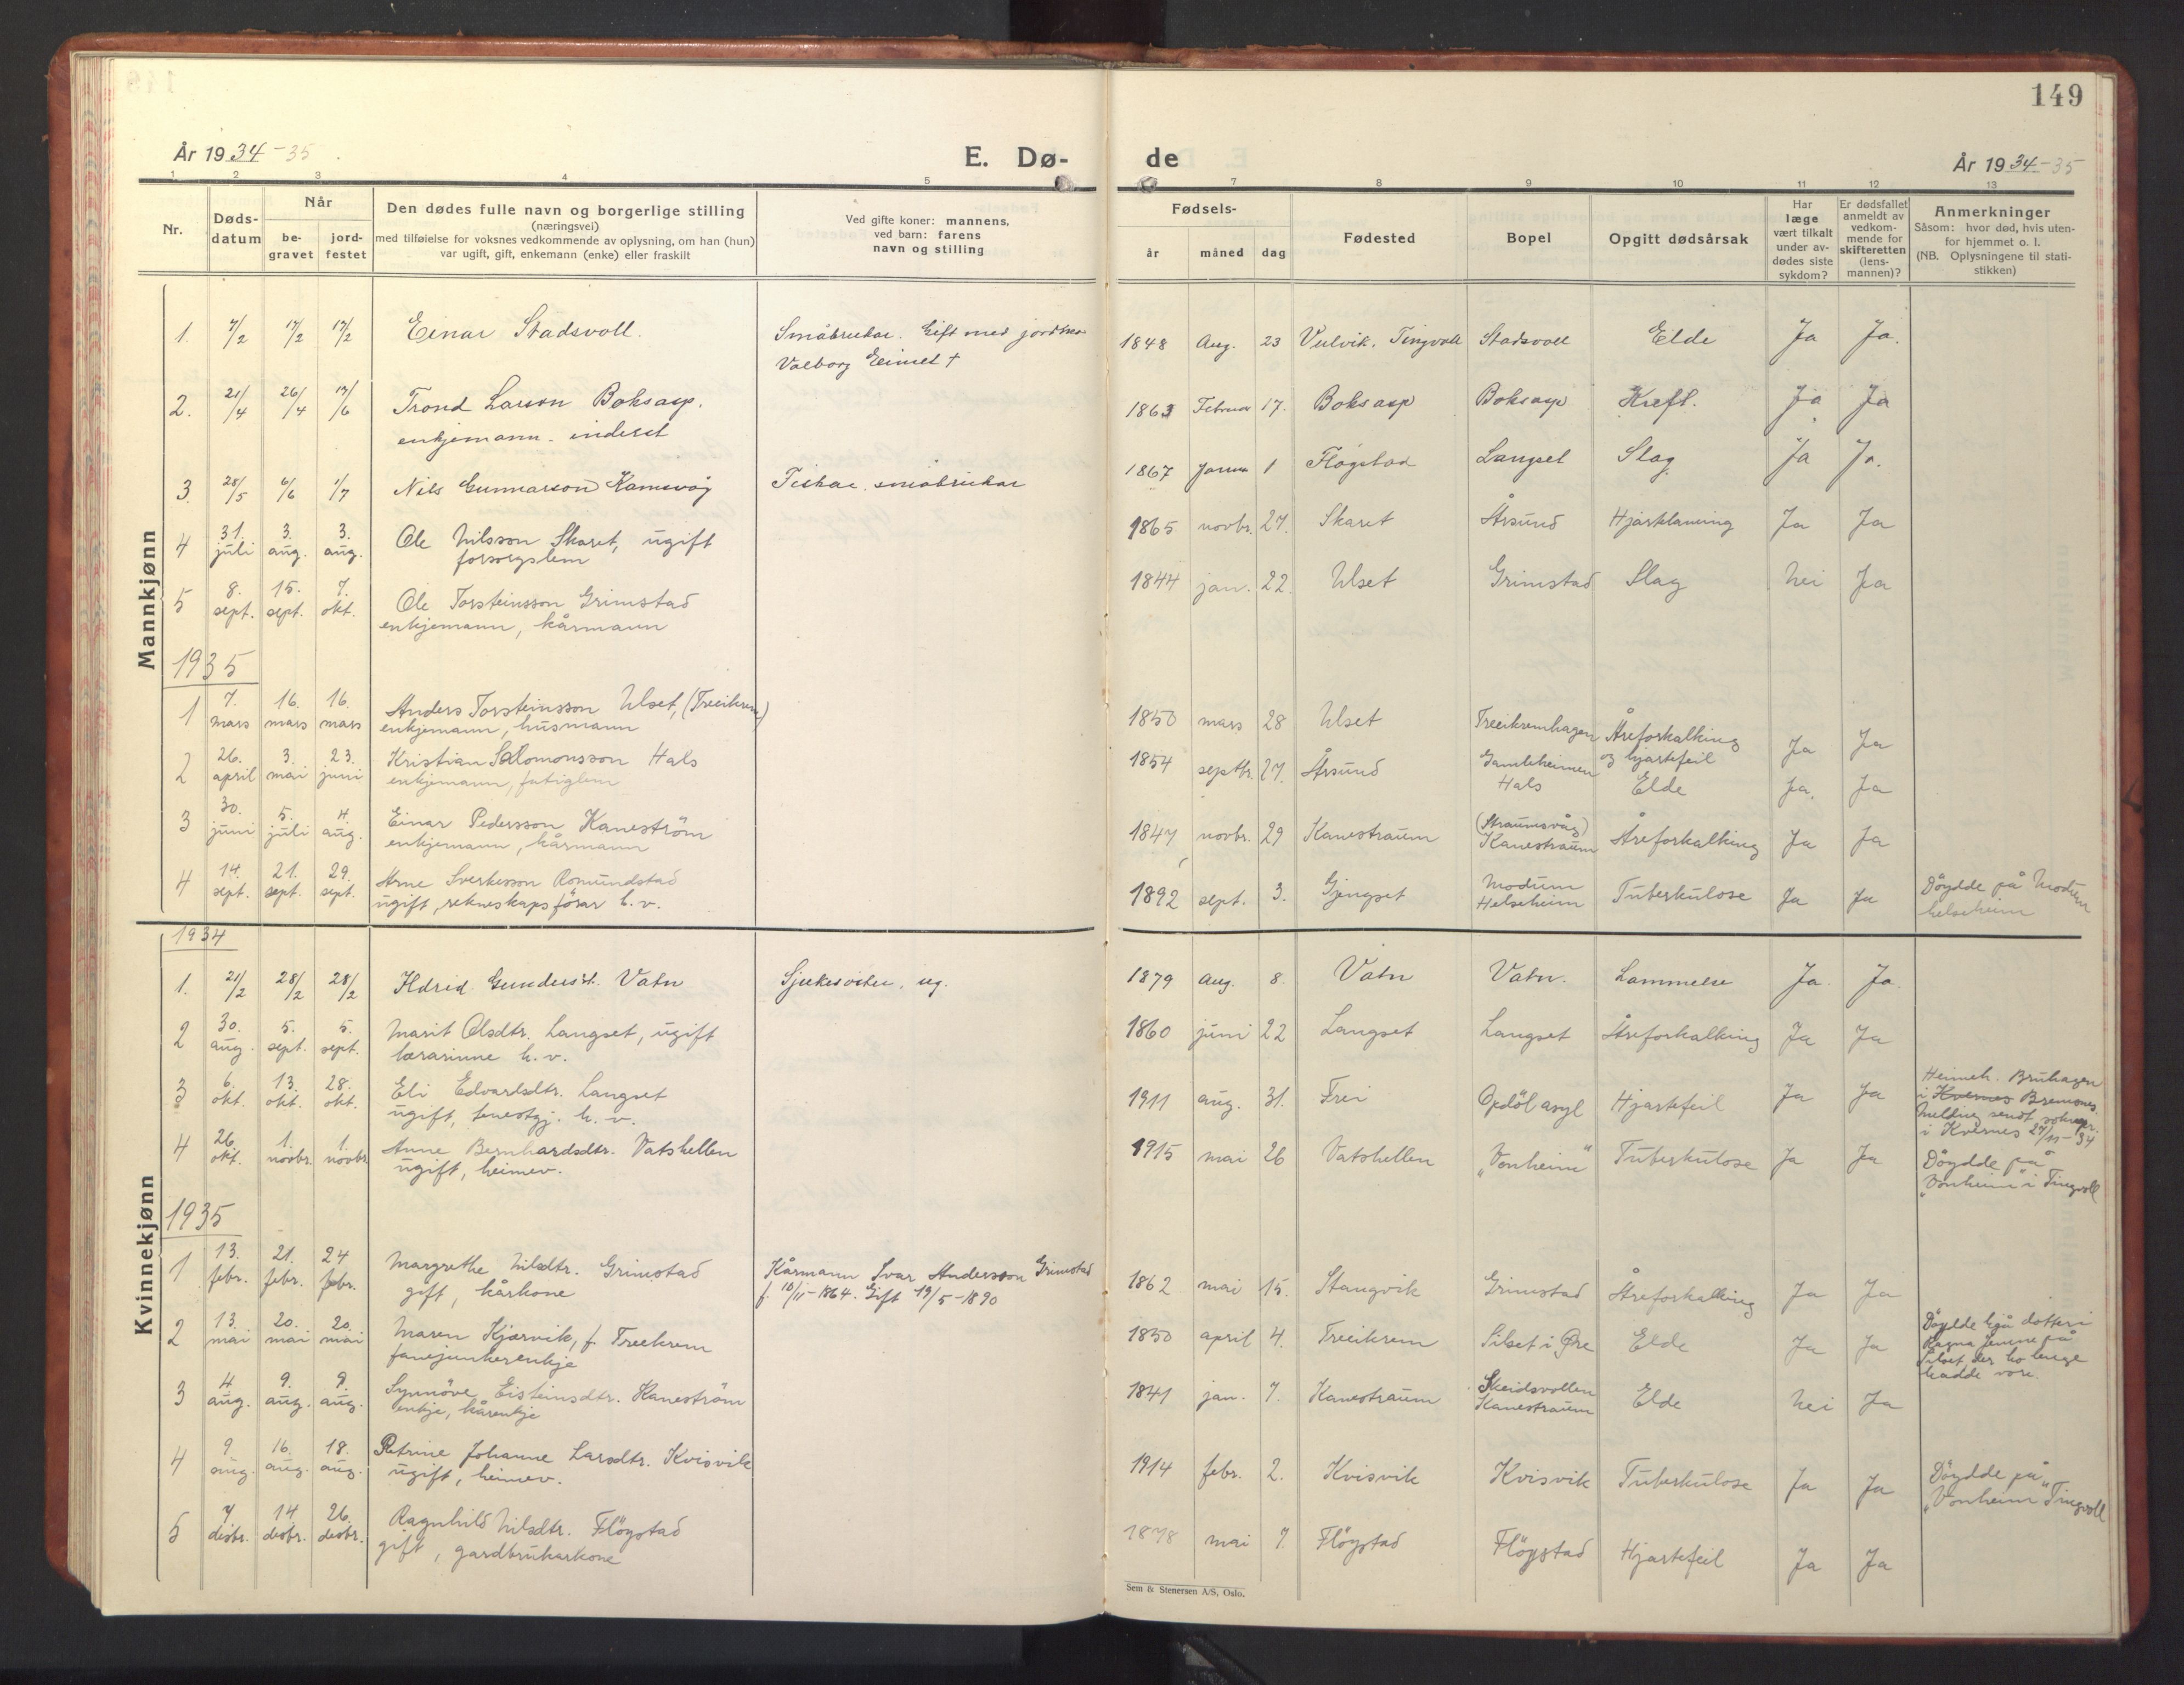 149
År 1934-35
E. Dø-
de
År 1934-35
1. 2 3 4 5
7 8 9 10 11 12 13
Nr.
Døds-
datum
Når
be-
gravet
jord-
festet
Den dødes fulle navn og borgerlige stilling
(næringsvei)
med tilføielse for voksnes vedkommende av oplysning, om han (hun)
var ugift, gift, enkemann (enke) eller fraskilt
Ved gifte koner: mannens,
ved barn: farens
navn og stilling
Fødsels-
år måned dag
Fødested
Bopel
Opgitt dødsårsak
Har
læge
vært tilkalt
under av-
dødes siste
sykdom?
Er dødsfallet
anmeldt av
vedkom-
mende for
skifteretten
(lens-
mannen)?
Anmerkninger
Såsom: hvor død, hvis uten-
for hjemmet o. l.
(NB. Oplysningene til stati-
stikken)
Mannkjønn
1. 7/2 17/2 17/2 Einar Stadsvoll. Småbrukar. Gift med jordmor
Valborg Eimet †
1848 Aug. 23 Vulvik, Tingvoll Stadsvoll Elde Ja Ja.
2. 21/4 26/4 17/6 Trond Larson Boksasp.
enkjemann - inderst
1863 Februar 17. Boksasp Boksasp Kreft. Ja Ja
3. 28/5 6/6 1/7 Nils Gunnarson Kamsvåg Fiskar, småbrukar
1867 Januar 1 Fløgstad Langset Slag Ja Ja.
4 31. juli 3. aug. 3. aug. Ole Nilsson Skaret, ugift
forsorgslem
1865 novbr. 27. Skaret Årsund Hjartelaming Ja Ja
5 8. sept. 15. sept. 7. okt. Ole Torsteinsson Grimstad
enkjemann, kårmann
1844 jan. 22. Ulset Grimstad Slag Nei Ja
1935
1 7. mars 16. mars 16. mars Anders Torsteinsson Ulset, (Treeikrem)
enkjemann, husmann
1850 mars 28 Ulset Treeikremhagen Åreforkalking
og hjartefeil Ja Ja
2 26. april 3. mai 23. juni Kristian Salomonsson Hals
enkjemann, fatiglem
1854 septbr. 27. Årsund Gamleheimen
Hals Elde Ja. Ja
3 30. juni 5. juli 4. aug. Einar Pedersson Kaneström
enkjemann, kårmann
1847 novbr. 29 Kanestraum (Straumsvåg)
Kanestraum Åreforkalking Ja Ja
4 14. sept. 21. sept. 29. sept. Arne Sverkesson Romundstad
ugift, rekneskapsförar h. v.
1892 sept. 3. Gjengset Modum
Helseheim Tuberkulose Ja Ja Döydde på Modum
helseheim
Kvinnekjønn
1934
1. 21/2 28/2 28/2 Ildrid Gundersdt. Vatn Sjukesöster, ug.
1879 Aug. 8. Vatn Vatn. Lammelse Ja. Ja.
2 30. aug. 5. sept. 5. sept. Marit Olsdtr. Langset, ugift
lærarinne h. v.
1860 juni 22 Langset Langset Åreforkalking Ja Ja
3 6. okt. 13. okt. 28. okt. Eli Edvardsdtr. Langset
ugift, tenestgj. h. v.
1911 aug. 31. Frei Opdöl asyl Hjartefeil Ja Ja Heimeh. Bruhagen
i Kvernes Bremsnes.
Melding sendt soknepr.
i Kvernes 27/11-34
4 26. okt. 1. novbr. 1. novbr. Anne Bernhardsdtr. Vatshellen
ugift, heimev.
1915 mai 26 Vatshellen „Vonheim" Tuberkulose Ja Ja Döydde på
„Vonheim" i Tingvoll
1935
1 13. febr. 21. febr. 24 febr. Margrethe Nilsdtr. Grimstad
gift, kårkone
Kårmann Ivar Andersson Grimstad
f. 10/11-1864. Gift 19/5-1890
1862 mai 15. Stangvik Grimstad Åreforkalking Ja Ja
2 13. mai 20. mai 20. mai Maren Kjørvik, f. Treekrem
fanejunkerenkje
1850 april 4. Treeikrem Silset i Øre Elde Ja Ja Döydde hjå dotteri
Ragna Jenne på
Silset der ho lenge
hadde vore.
3 4 aug. 9. aug. 9. aug. Synnöve Eisteinsdtr. Kaneström
enkje, kårenkje
1841 jan. 7. Kanestraum Skeidsvollen
Kanestraum Elde Nei Ja
4 9. aug. 16. aug. 18. aug. Petrine Johanne Larsdtr. Kvisvik
ugift, heimev.
1914 febr. 2. Kvisvik Kvisvik Tuberkulose Ja Ja Döydde på
„Vonheim" Tingvoll
5 7 desbr. 14 desbr. 26. desbr. Ragnhild Nilsdtr. Flögstad
gift, gardbrukarkone
1878 mai 7. Flögstad Flögstad Hjartefeil Ja Ja
Sem & Stenersen A/S, Oslo.